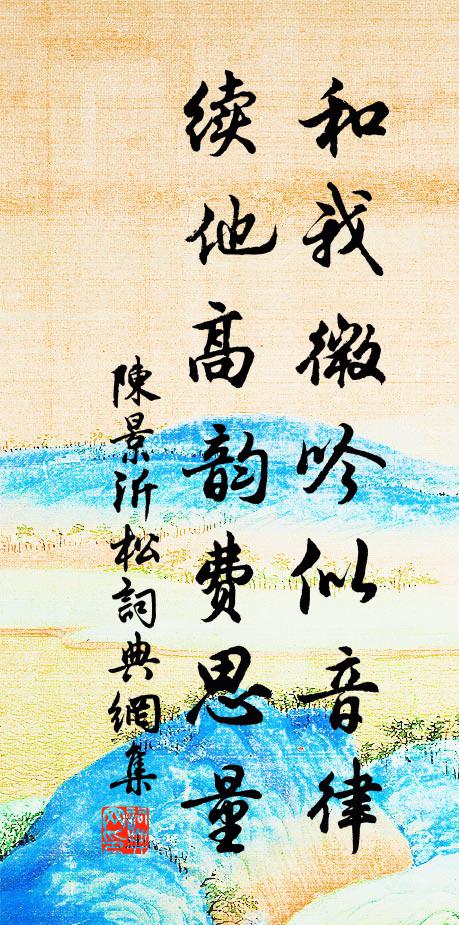 和我微吟似音律
续他高韵费思量
陳景沂松詞典網集